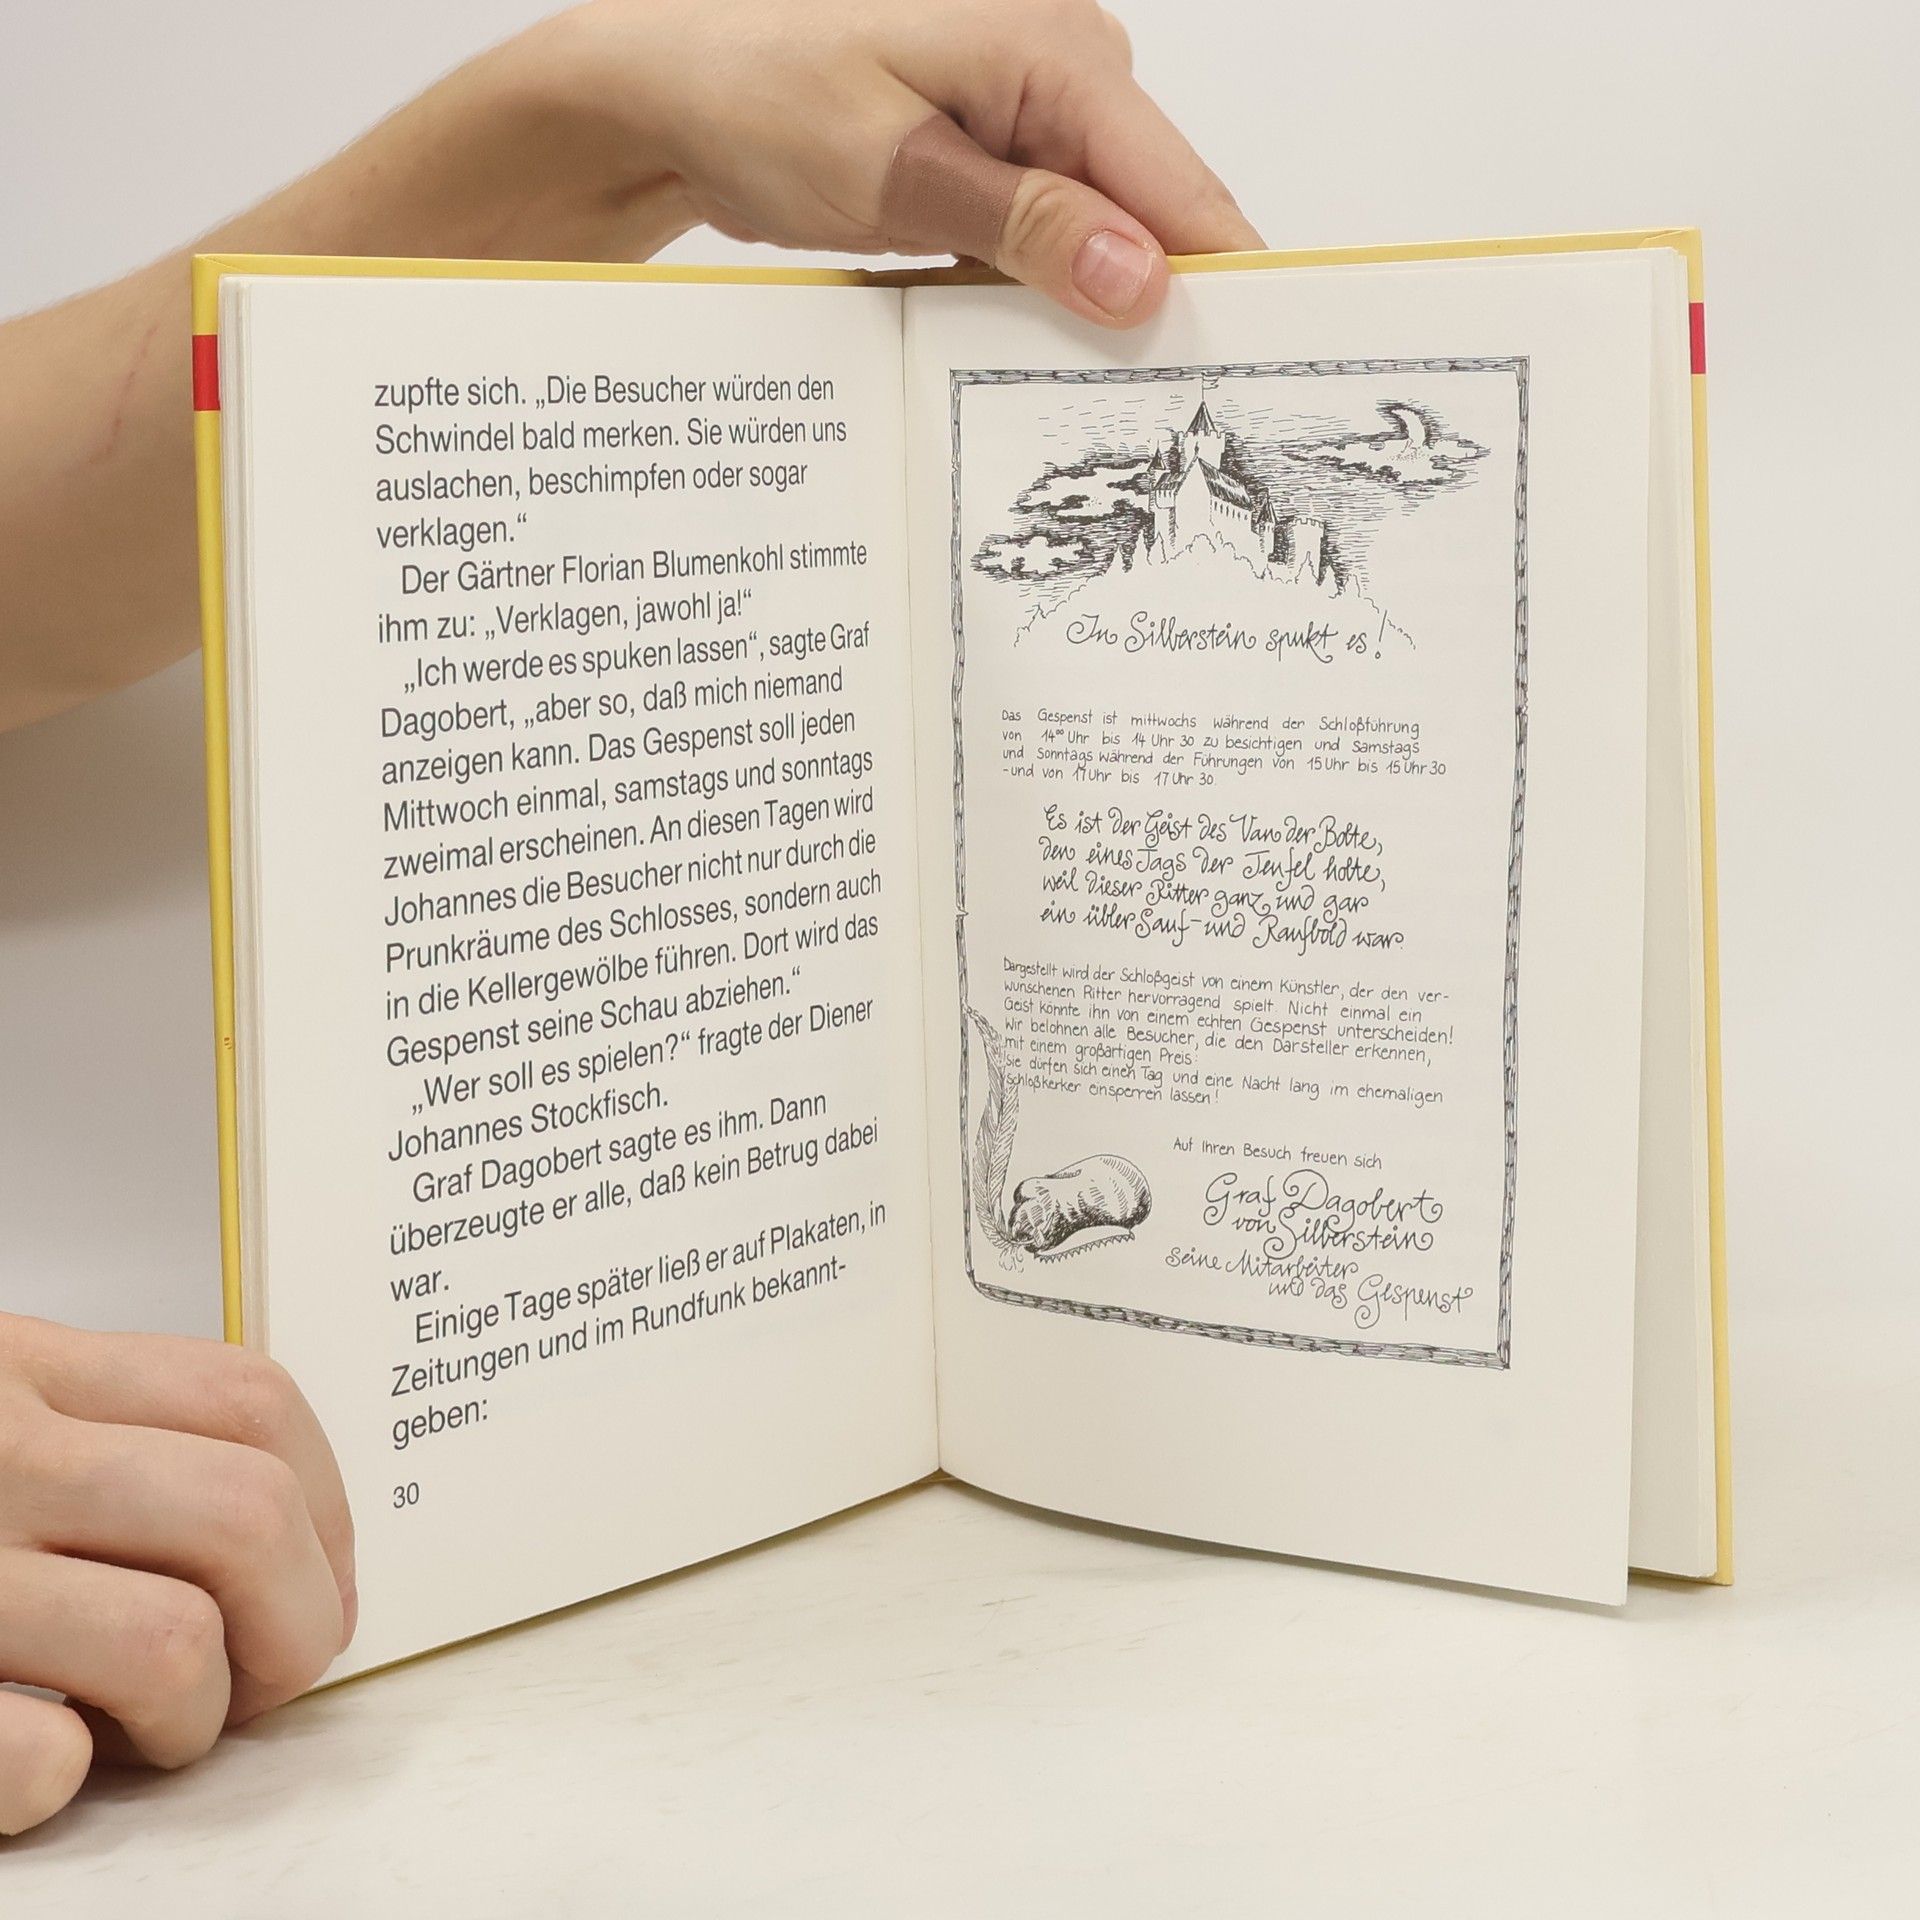 zupfte sich. „Die Besucher würden den
Schwindel bald merken. Sie würden uns
auslachen, beschimpfen oder sogar
verklagen.“
Der Gärtner Florian Blumenkohl stimmte
ihm zu: „Verklagen, jawohl ja!“
„Ich werde es spuken lassen“, sagte Graf
Dagobert, „aber so, daß mich niemand
anzeigen kann. Das Gespenst soll jeden
Mittwoch einmal, samstags und sonntags
zweimal erscheinen. An diesen Tagen wird
Johannes die Besucher nicht nur durch die
Prunkräume des Schlosses, sondern auch
in die Kellergewölbe führen. Dort wird das
Gespenst seine Schau abziehen.“
„Wer soll es spielen?“ fragte der Diener
Johannes Stockfisch.
Graf Dagobert sagte es ihm. Dann
überzeugte er alle, daß kein Betrug dabei
war.
Einige Tage später ließ er auf Plakaten, in
Zeitungen und im Rundfunk bekannt-
geben:
30
In Silberstein spukt es!
Das Gespenst ist mittwochs während der Schloßführung
von 14⁰⁰ Uhr bis 14 Uhr 30 zu besichtigen und Samstags
und Sonntags während der Führungen von 15 Uhr bis 15 Uhr 30
-und von 17 Uhr bis 17 Uhr 30.
Es ist der Geist des Van der Bolte,
den eines Tags der Teufel holte,
weil dieser Ritter ganz und gar
ein übler Sauf- und Raufbold war.
Dargestellt wird der Schloßgeist von einem Künstler, der den ver-
wunschenen Ritter hervorragend spielt. Nicht einmal ein
Geist könnte ihn von einem echten Gespenst unterscheiden!
Wir belohnen alle Besucher, die den Darsteller erkennen,
mit einem großartigen Preis:
Sie dürfen sich einen Tag und eine Nacht lang im ehemaligen
Schloßkerker einsperren lassen!
Auf Ihren Besuch freuen sich
Graf Dagobert
von Silberstein
seine Mitarbeiter
und das Gespenst